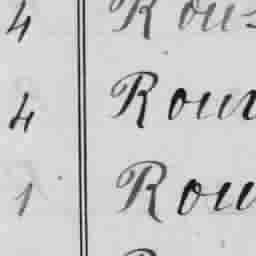 4 Rous
4 Rour
1 Rou